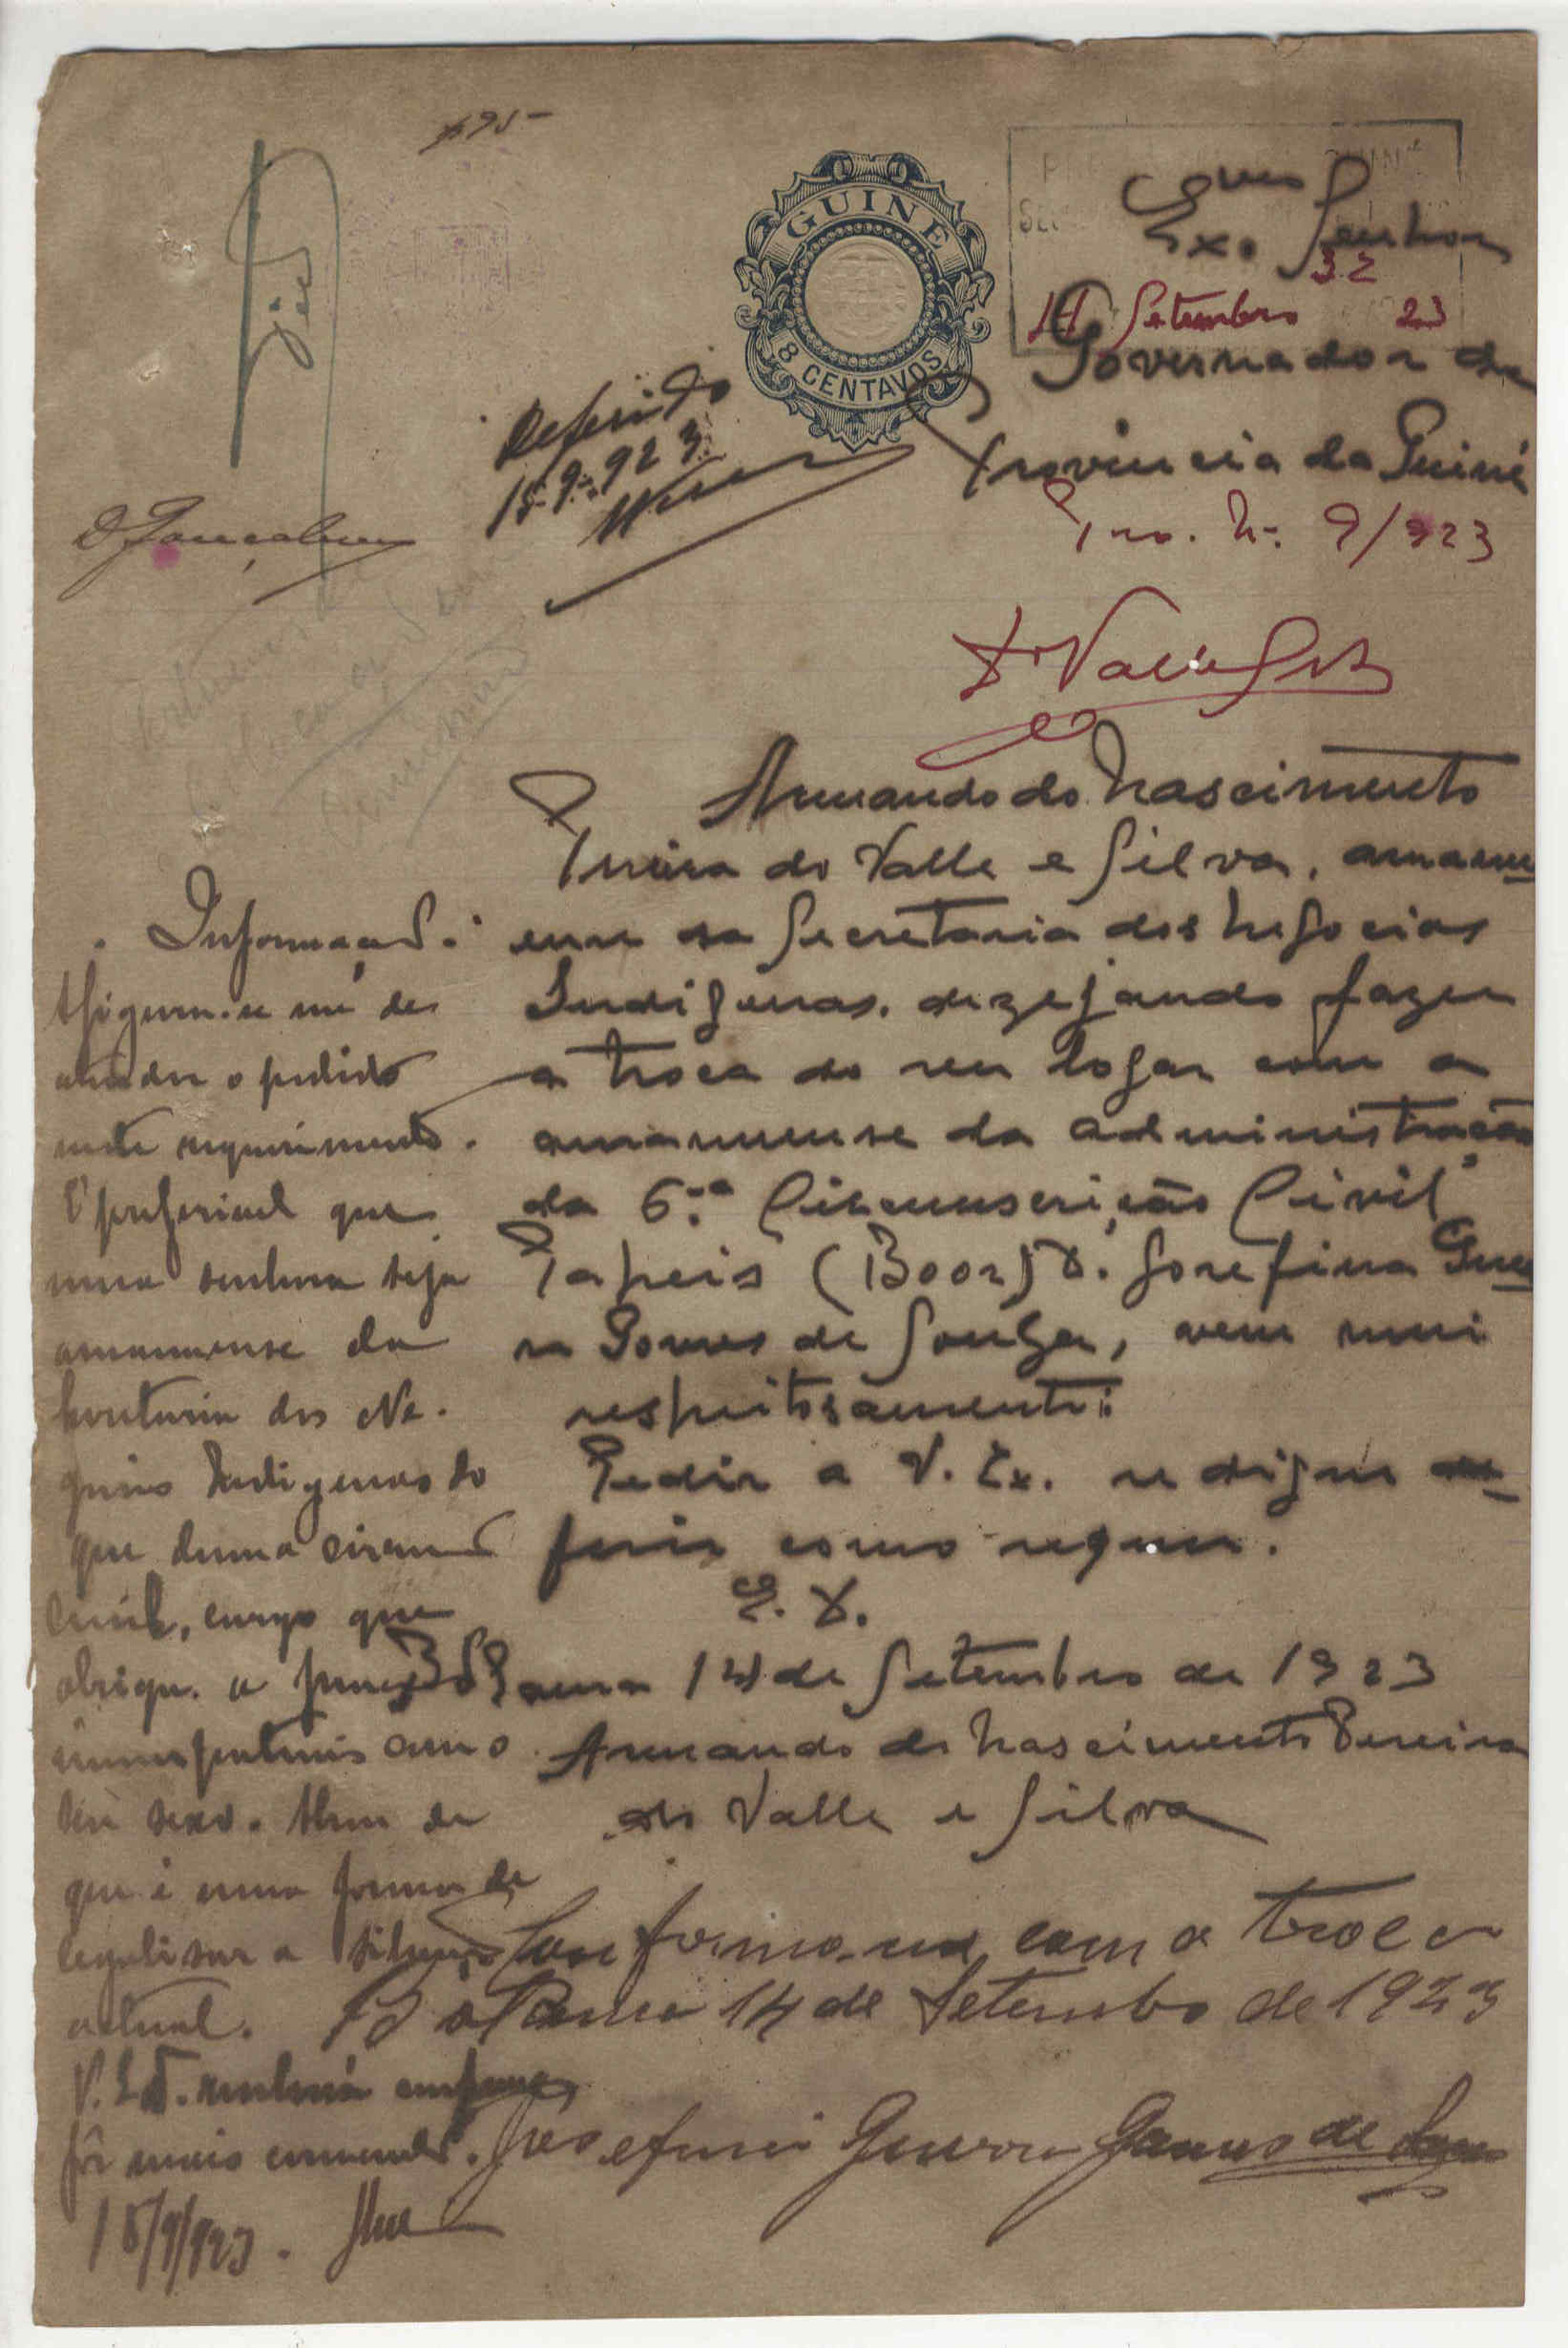 GUINÉ
8 CENTAVOS
Exmo Senhor
32
14 Setembro 23
Governador da
Provincia da Guiné
Deferido
15-9-923
Pro. N.º 9/923
Armando do Nascimento
Pereira do Valle e Silva, amanu
ense da Secretaria dos Negocios
Indigenas, dezejando fazer
a troca do seu logar com a
amanuense da administração
da 6.ª Circunscrição Civil
Papeis (Boor) D. Josefina Guer
ra Gomes de Souza, vem mui
respeitosamente:
Pedir a V. Ex. se digne de
ferir como requer.
E. D.
Bolama 14 de Setembro de 1923
Armando do Nascimento Pereira
do Valle e Silva
Conformo-me com a troca
Bolama 14 de Setembro de 1923
Josefina Guerra Gomes de Souza
Informação:
Afigura-se me de
atender o pedido
neste requerimento.
É preferivel que
uma senhora seja
amanuense da
Secretaria dos Ne-
gocios Indigenas do
que duma circuns
civil, cargo que
obriga a funções
incompativeis com o
seu sexo. Alem de
que é uma forma de
legalisar a situação
actual.
V. Ex.
fôr mais conveniente.
15/9/923.